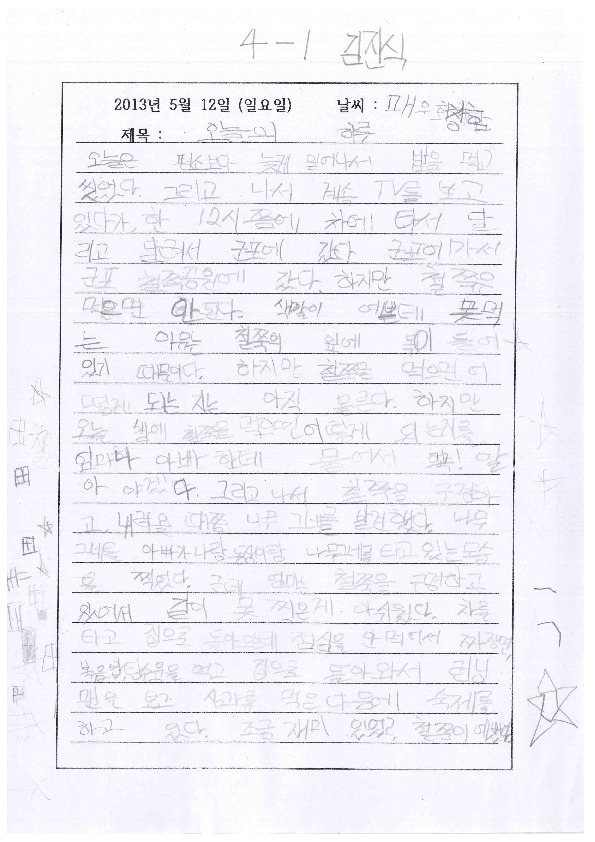 4-1 김진식
2013년 5월 12일 (일요일) 날씨 : 매우 화창함
제목 : 오늘의 하루
오늘은 평소보다 늦게 일어나서 밥을 먹고
씻었다. 그리고 나서 계속 TV를 보고
있다가, 한 12시쯤에, 차에 타서 달
리고 달려서 군포에 갔다. 군포에 가서
군포 철쭉공원에 갔다. 하지만 철쭉은
먹으면 안된다. 색깔이 예쁜데 못먹
는 이유는 철쭉의 잎에 독이 들어
있기 때문이다. 하지만 철쭉을 먹으면 어
떻게 되는 지는 아직 모른다. 하지만
오늘 밤에 철쭉을 먹으면 어떻게 되는지를
엄마나 아빠 한테 물어서 꼭! 알
아 야겠다. 그리고 나서 철쭉을 구경하
고, 나무 그네를 발견했다. 나무
그네를 아빠가 나랑 동생이랑 나무그네를 타고 있는 모습
을 찍었다. 근데 엄마는 철쭉을 구경하고
있어서 같이 못 찍은게 아쉬웠다. 차를
타고 집으로 돌아 점심을 안먹어서 짜장면,
볶음밥, 탕수육을 먹고 집으로 돌아와서 런닝
맨을 보고 사과를 먹은 다음에 숙제를
하고 있다. 조금 재미 있었고, 철쭉이 예뻤다.